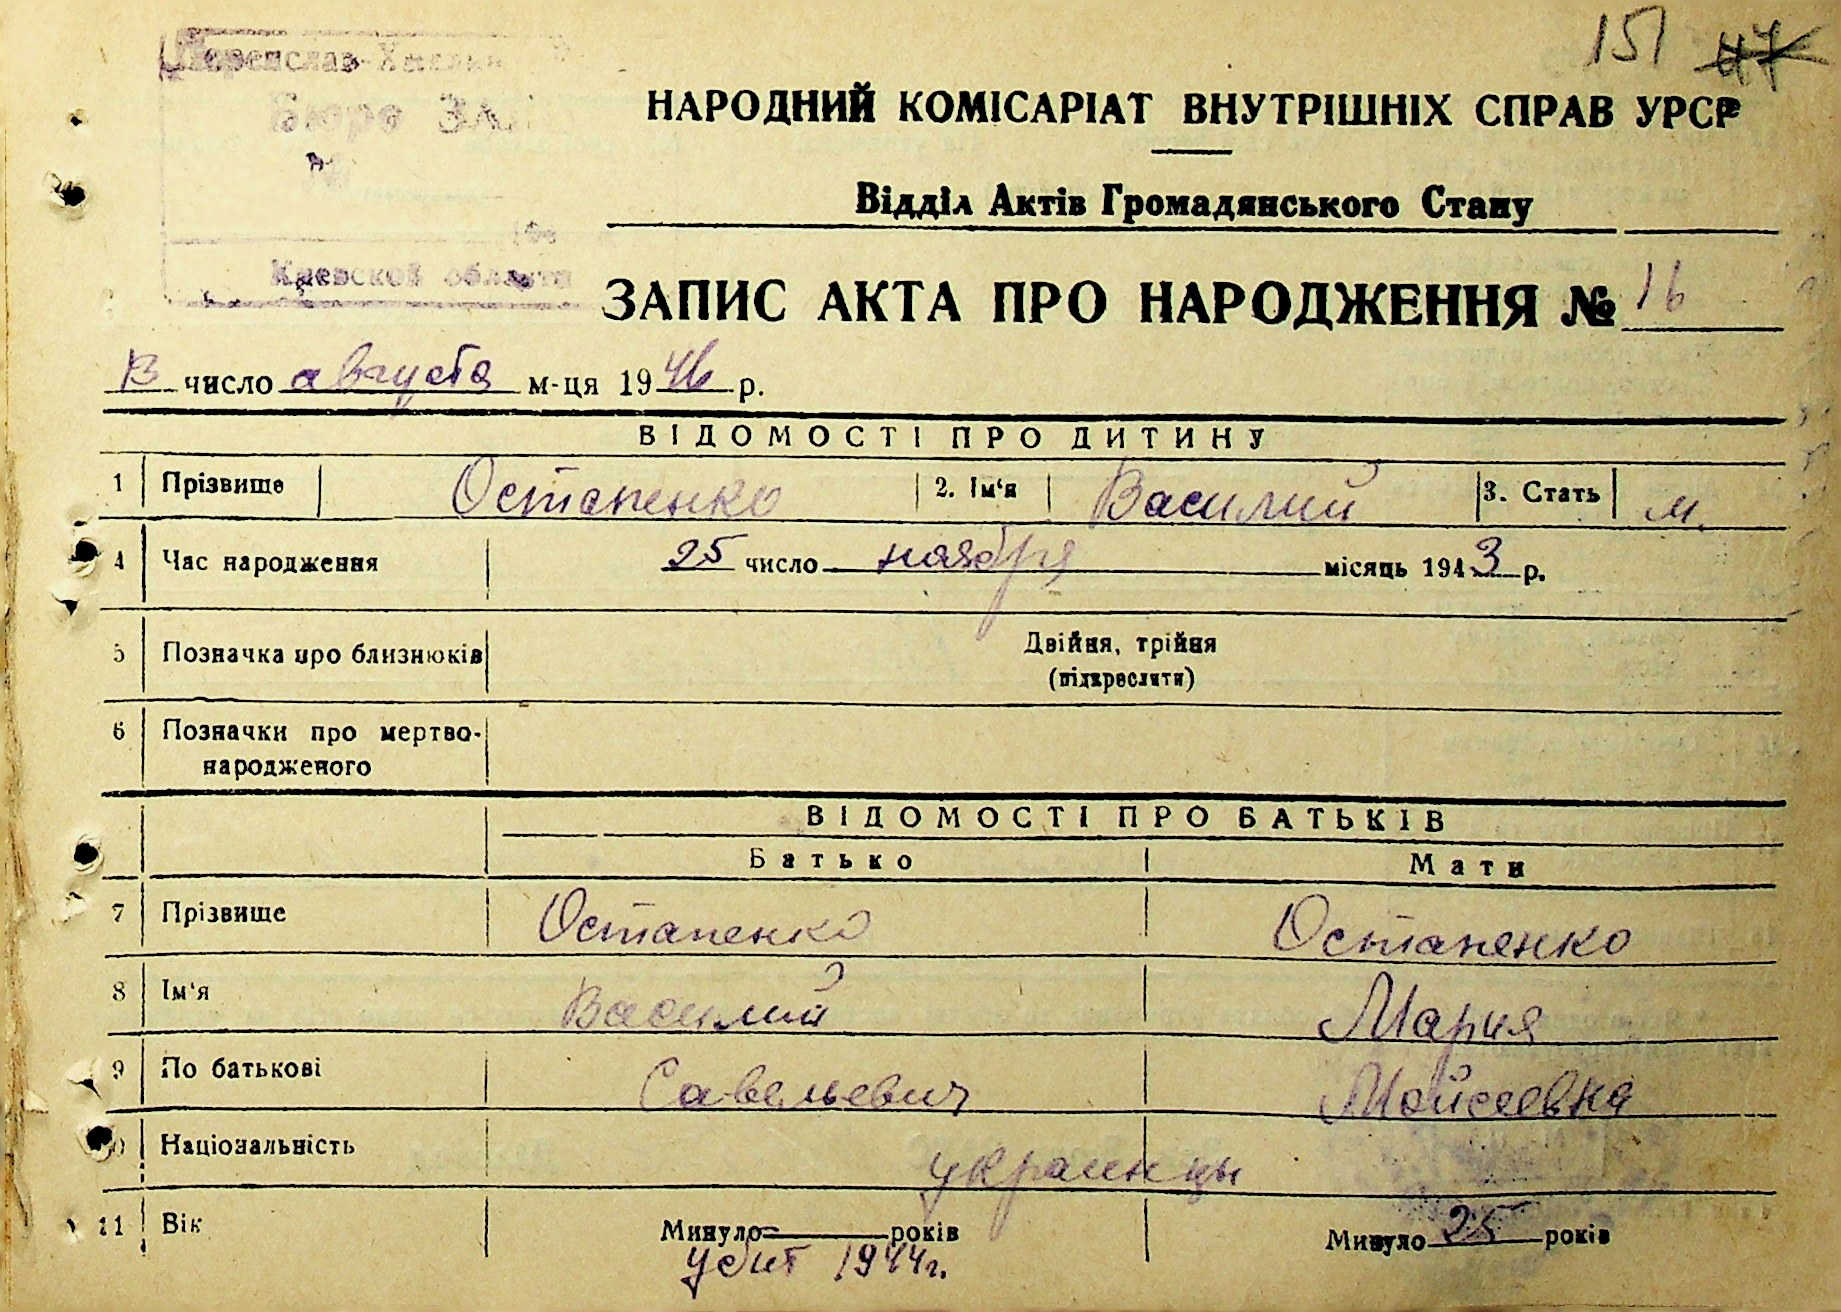 151 47
Бюро ЗАГС
Киевской области
НАРОДНИЙ КОМІСАРІАТ ВНУТРІШНІХ СПРАВ УРСР
Відділ Актів Громадянського Стану
ЗАПИС АКТА ПРО НАРОДЖЕННЯ № 16
13 число августа м-ця 1946 р.
ВІДОМОСТІ ПРО ДИТИНУ
1 Прізвище Остапенко 2. Ім'я Василий 3. Стать м.
4 Час народження 25 число ноября місяць 1943 р.
5 Позначка про близнюків Двійня, трійня
(підкреслити)
6 Позначки про мертво-
народженого
ВІДОМОСТІ ПРО БАТЬКІВ
Батько Мати
7 Прізвище Остапенко Остапенко
8 Ім'я Василий Мария
9 По батькові Савельевич Мойсеевна
10 Національність украинцы
11 Вік Минуло років Минуло 25 років
убит 1944г.